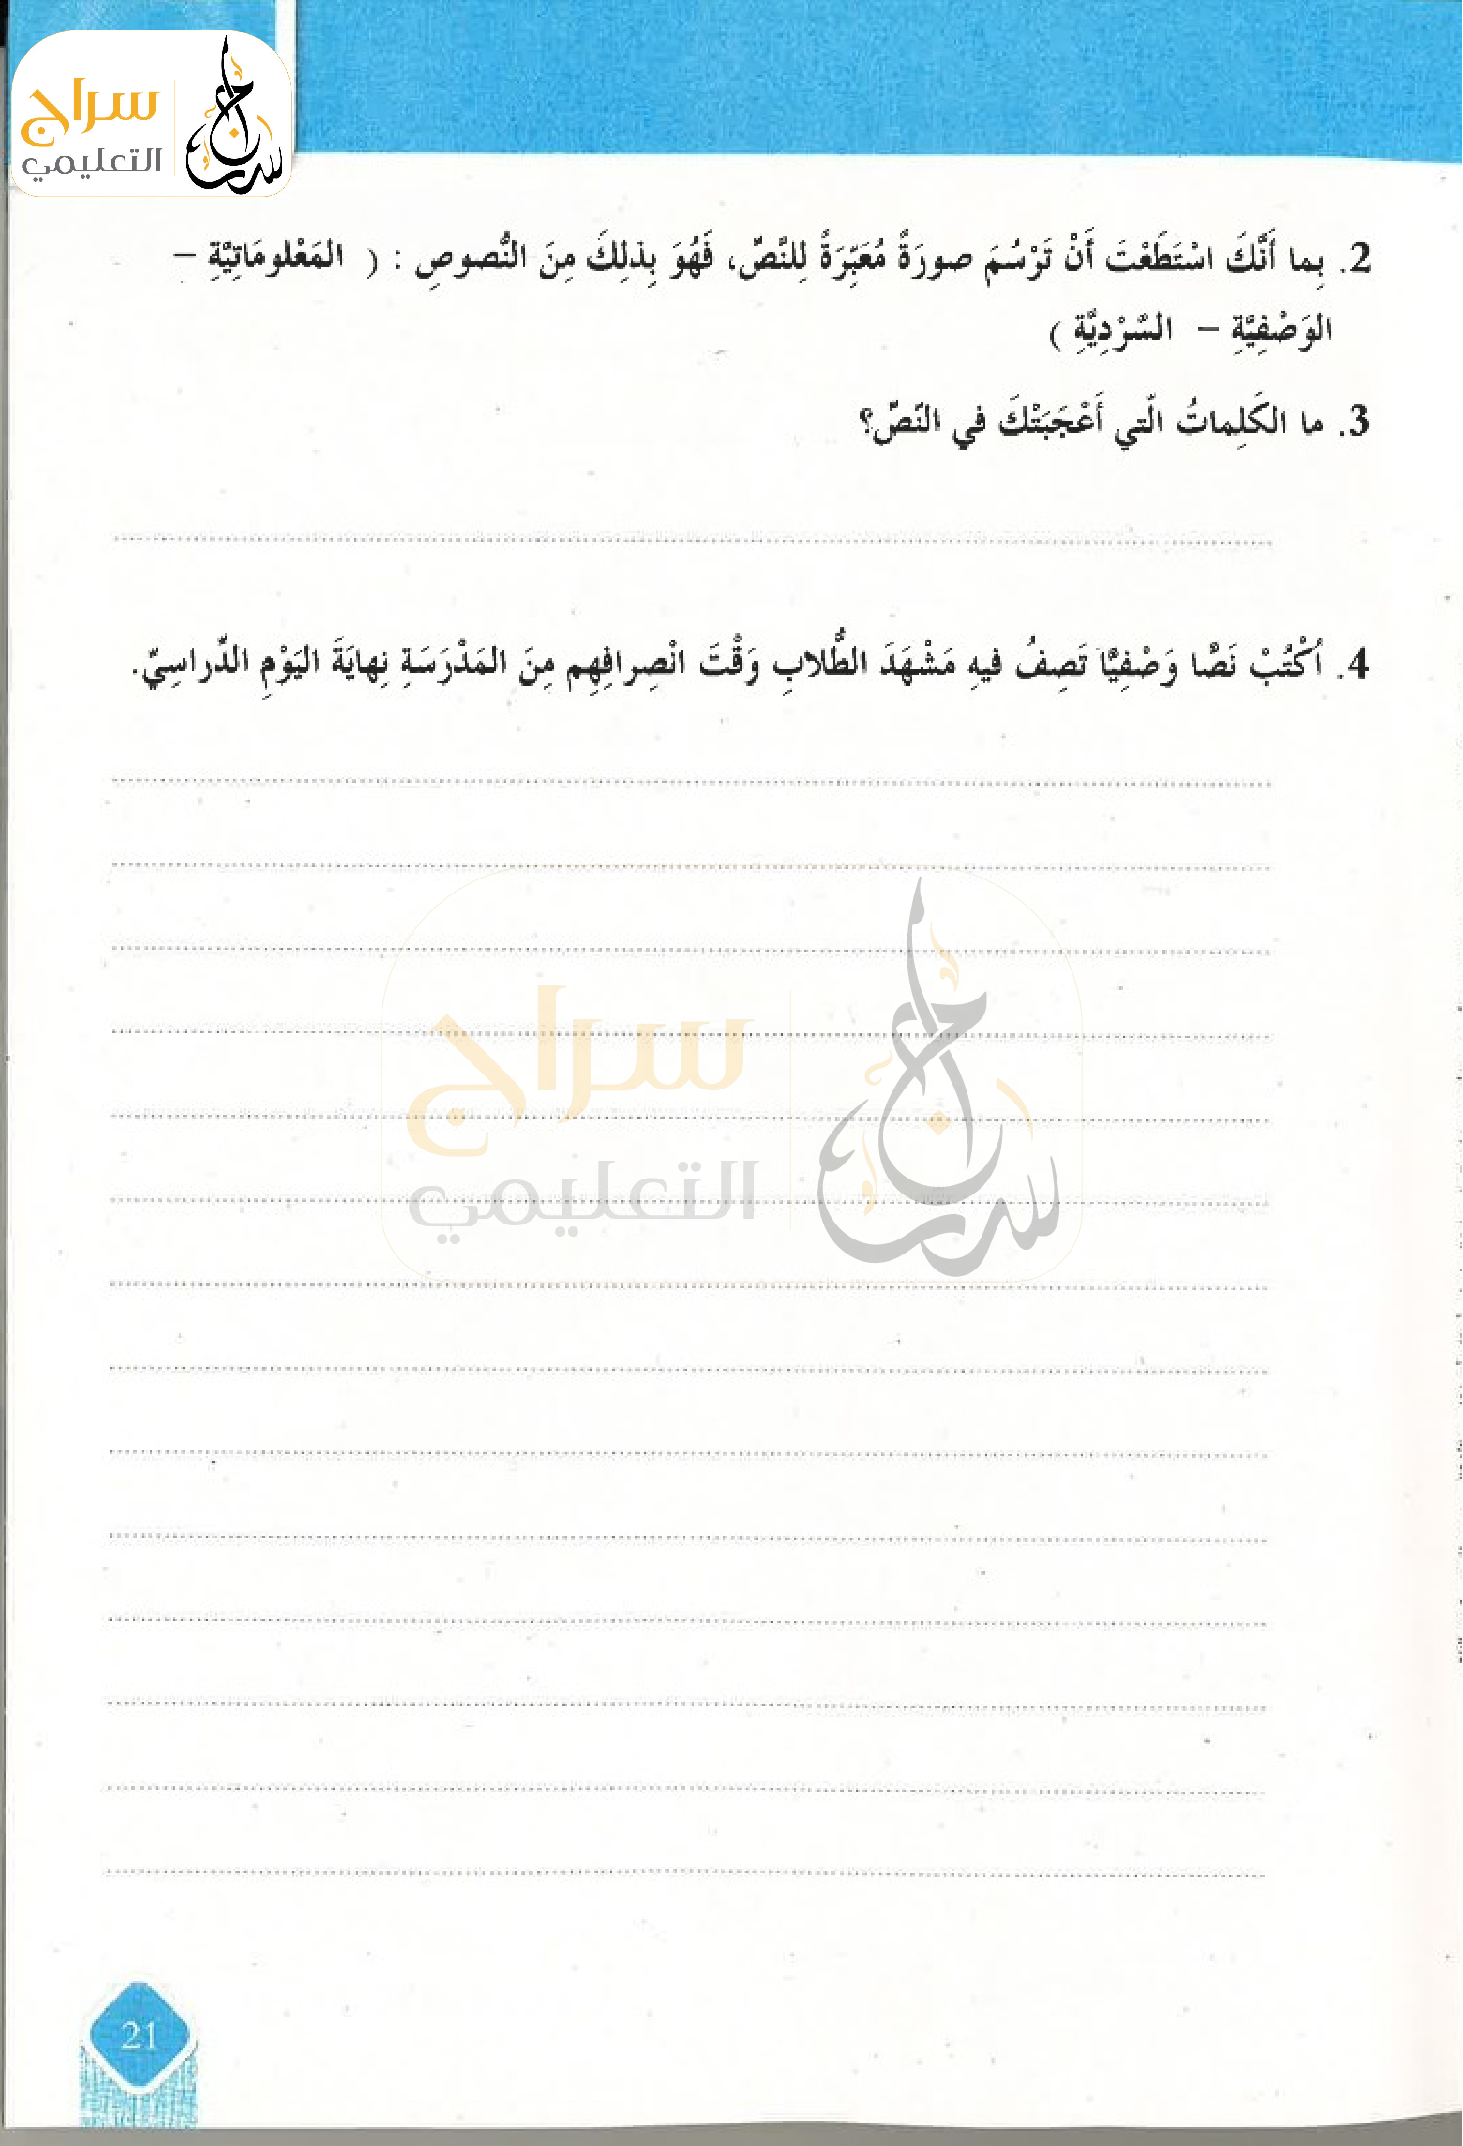 سراج
التعليمي
2. بِما أَنَّكَ اسْتَطَعْتَ أَنْ تَرْسُمَ صورَةً مُعَبِّرَةً لِلنَّصِّ، فَهُوَ بِذلِكَ مِنَ النُّصوصِ : ( المَعْلوماتِيَّةِ –
الوَصْفِيَّةِ – السَّرْدِيَّةِ )
3. ما الكَلِماتُ الّتي أَعْجَبَتْكَ في النّصِّ؟
4. اُكْتُبْ نَصًّا وَصْفِيًّا تَصِفُ فيهِ مَشْهَدَ الطُّلابِ وَقْتَ انْصِرافِهِم مِنَ المَدْرَسَةِ نِهايَةَ اليَوْمِ الدِّراسِيِّ.
سراج
التعليمي
21